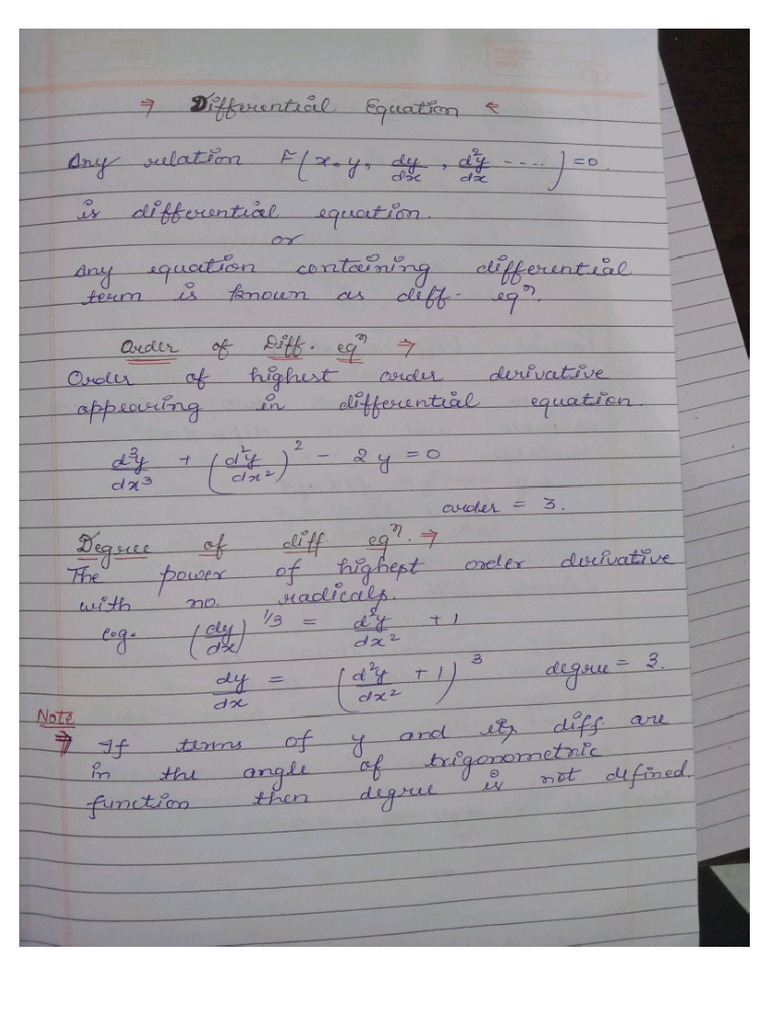 ⇒ Differential Equation ⇐
Any relation F(x, y, dy/dx, d²y/dx ----- ) = 0.
is differential equation.
or
Any equation containing differential
term is known as diff. eqⁿ.
Order of Diff. eqⁿ ⇒
Order of highest order derivative
appearing in differential equation.
d³y/dx³ + (d²y/dx²)² - 2y = 0
order = 3.
Degree of diff eqⁿ. ⇒
The power of highest order derivative
with no. radicals.
e.g. (dy/dx)^1/3 = d²y/dx² + 1
dy/dx = (d²y/dx² + 1)³ degree = 3.
Note
⇒ If terms of y and its diff are
in the angle of trigonometric
function then degree is not defined.